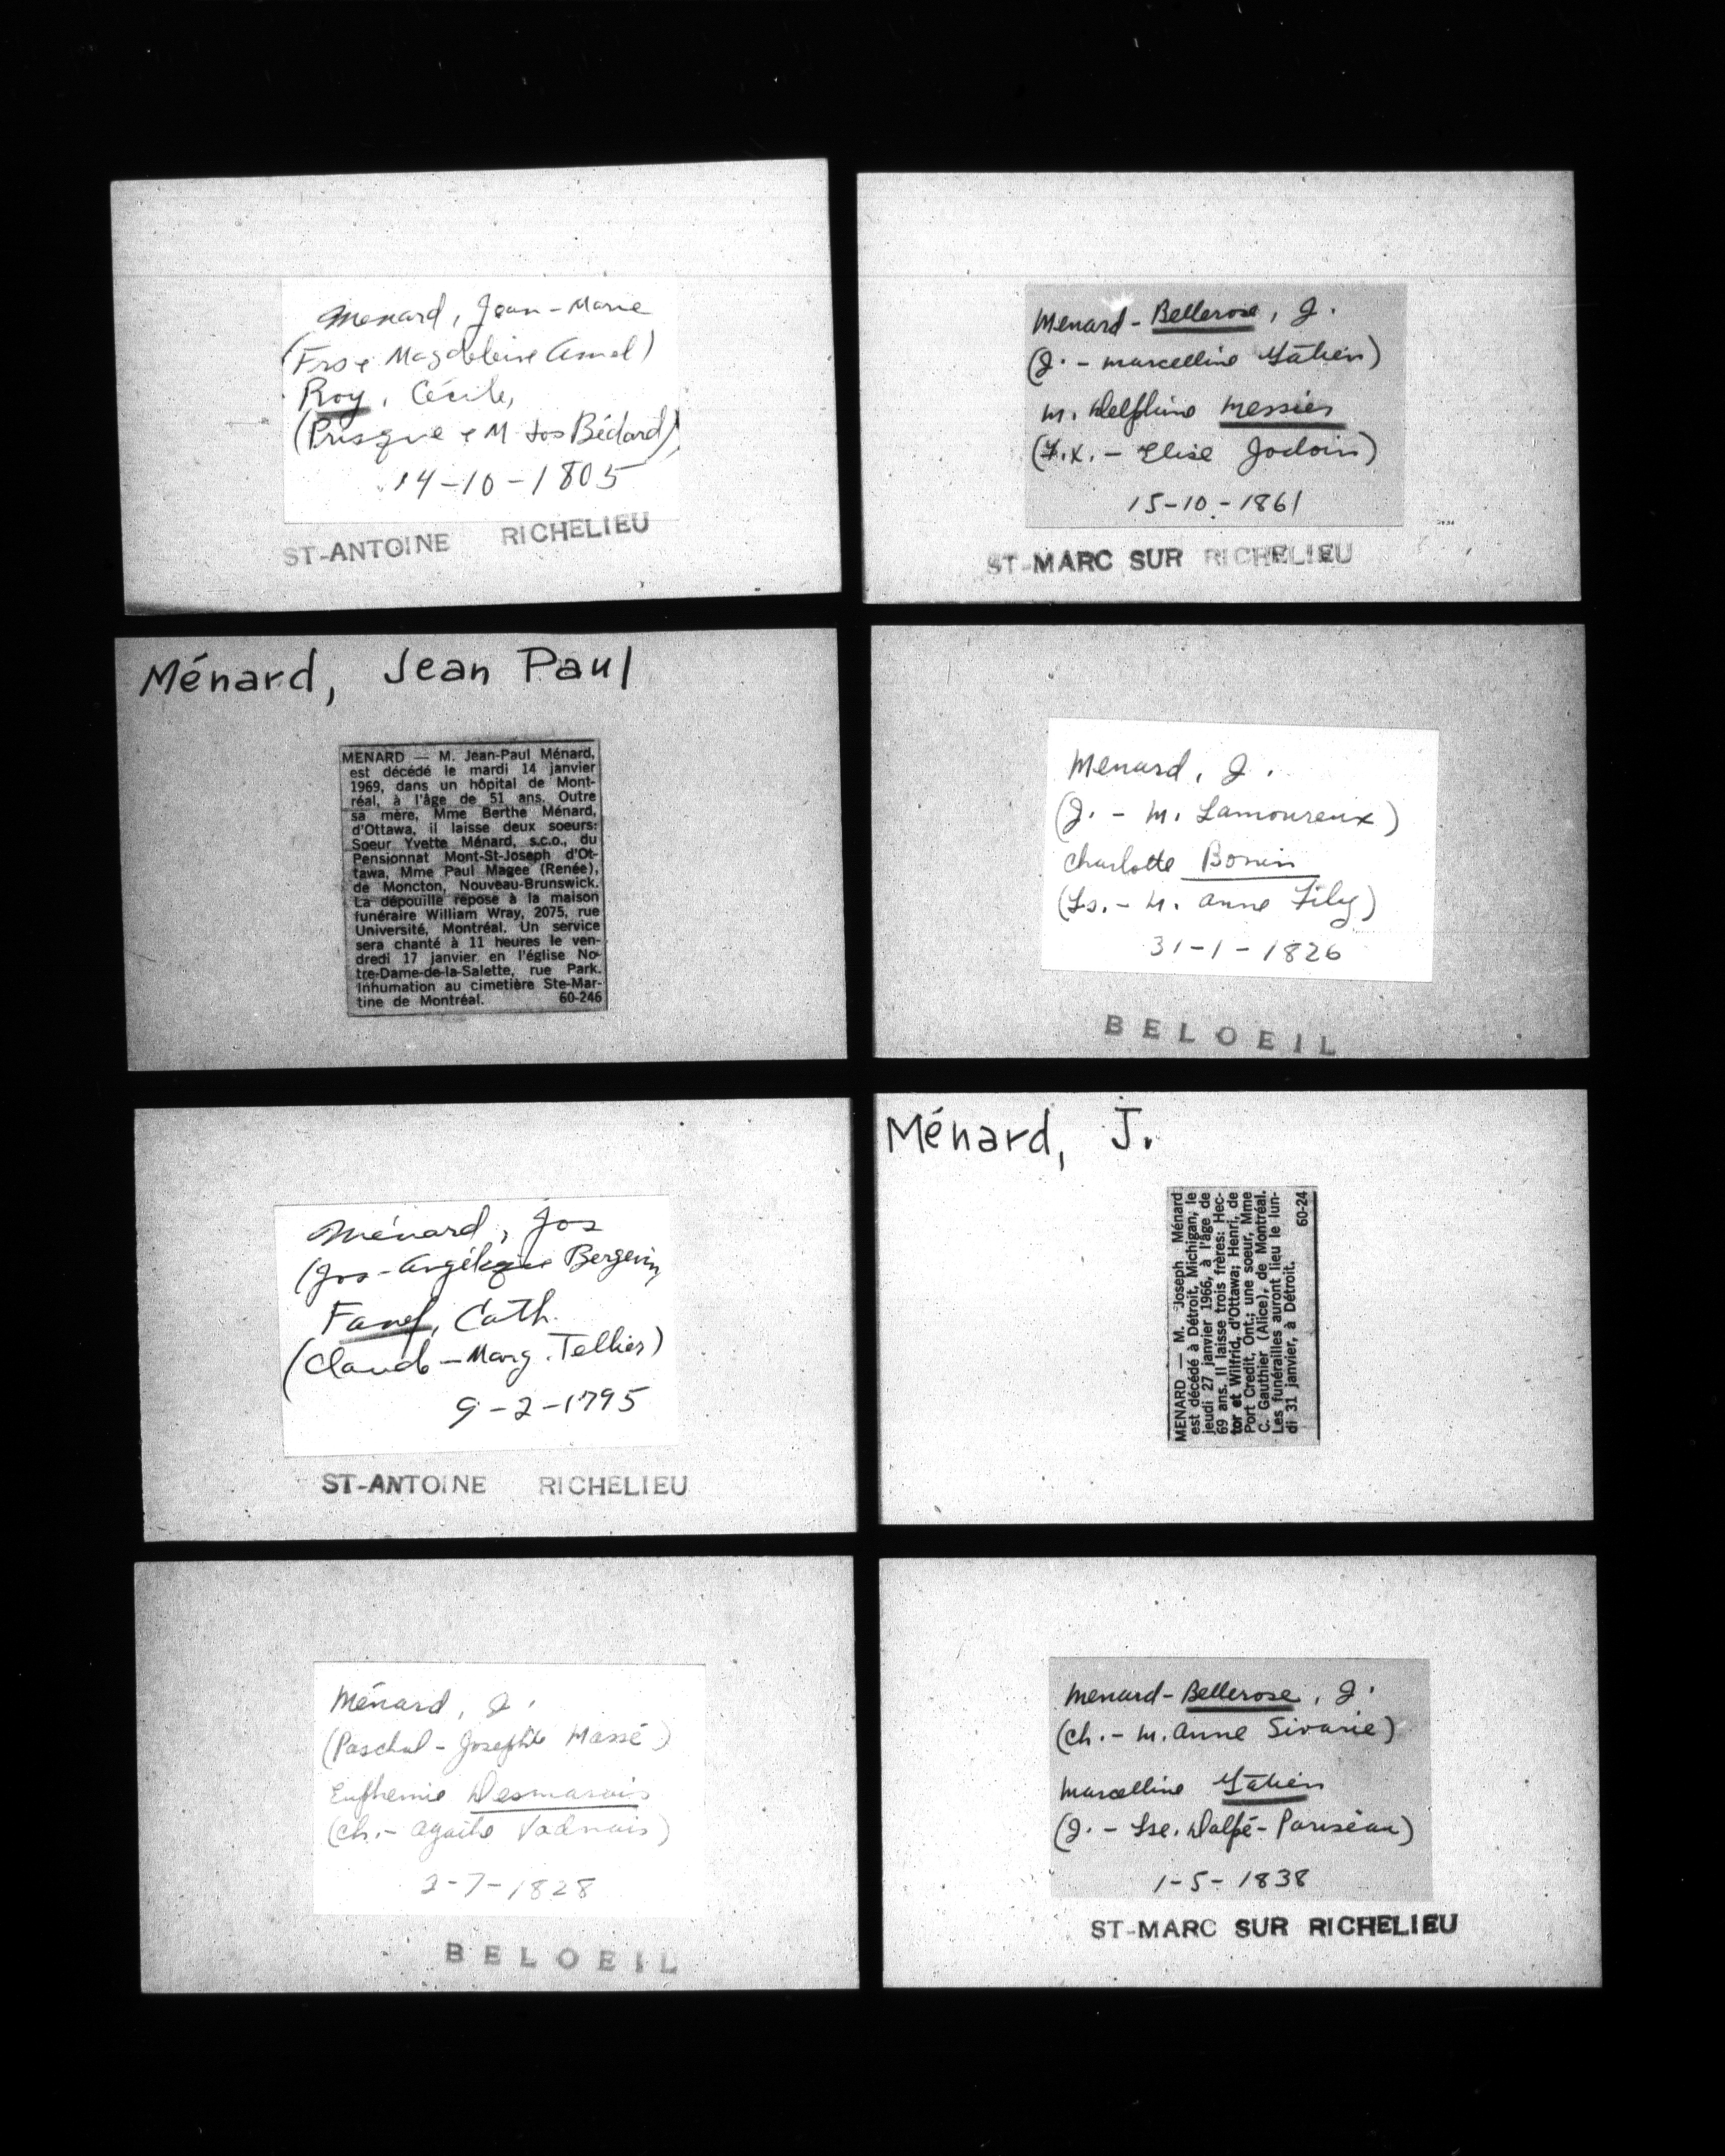 Menard, Jean-Marie
(Frs & Magdeleine Amel)
Roy, Cécile,
(Prisque & M Jos Bédard)
14-10-1805
ST-ANTOINE RICHELIEU
Menard-Bellerose, J.
(J. - Marcelline Gâtien)
M. Delphine Messier
(F.X. - Elise Jodoin)
15-10-1861
ST-MARC SUR RICHELIEU
Ménard, Jean Paul
MENARD — M. Jean-Paul Ménard,
est décédé le mardi 14 janvier
1969, dans un hôpital de Mont-
réal, à l'âge de 51 ans. Outre
sa mère, Mme Berthe Ménard,
d'Ottawa, il laisse deux soeurs:
Soeur Yvette Ménard, s.c.o., du
Pensionnat Mont-St-Joseph d'Ot-
tawa, Mme Paul Magee (Renée),
de Moncton, Nouveau-Brunswick.
La dépouille repose à la maison
funéraire William Wray, 2075, rue
Université, Montréal. Un service
sera chanté à 11 heures le ven-
dredi 17 janvier en l'église No-
tre-Dame-de-la-Salette, rue Park.
Inhumation au cimetière Ste-Mar-
tine de Montréal. 60-246
Menard, J.
(J. - M. Lamoureux)
Charlotte Bonin
(Ls. - M. Anne Fily)
31-1-1826
BELOEIL
Ménard, Jos
(Jos - Angélique Bergevin
Fanef, Cath.
(Claude - Marg. Tellier)
9-2-1795
ST-ANTOINE RICHELIEU
Ménard, J.
MENARD — M. Joseph Ménard
est décédé à Détroit, Michigan, le
jeudi 27 janvier 1966, à l'âge de
69 ans. Il laisse trois frères: Hec-
tor et Wilfrid, d'Ottawa; Henri, de
Port Credit, Ont.; une soeur, Mme
C. Gauthier (Alice), de Montréal.
Les funérailles auront lieu le lun-
di 31 janvier, à Détroit. 60-24
Ménard, J.
(Paschal - Josephte Massé)
Euphemie Desmarais
(Ch. - Agathe Vadnais)
2-7-1828
BELOEIL
Menard-Bellerose, J.
(Ch. - M. Anne Sivarie)
Marcelline Gâtien
(J. - Lse. Dalpé-Pariseau)
1-5-1838
ST-MARC SUR RICHELIEU